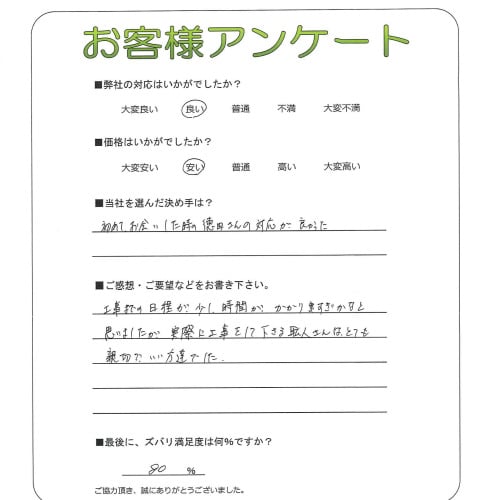 お客様アンケート
■弊社の対応はいかがでしたか？
大変良い 良い 普通 不満 大変不満
■価格はいかがでしたか？
大変安い 安い 普通 高い 大変高い
■当社を選んだ決め手は？
初めてお会いした時の徳田さんの対応が良かった
■ご感想・ご要望などをお書き下さい。
工事までの日程が少し時間がかかりますぎかなと
思いましたが実際に工事をして下さる職人さんはとても
親切でいい方達でした.
■最後に、ズバリ満足度は何%ですか？
80 %
ご協力頂き、誠にありがとうございました。